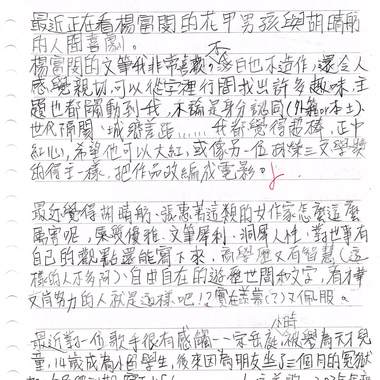 最近正在看楊富閔的花甲男孩與胡晴舫
的人間喜劇。
楊富閔的文筆我非常喜歡，不浮白也不造作，還令人
感覺親切，可以從字裡行間找出許多趣味，主
題也都觸動到我，不論是身分認同（外籍or本土）、
世代隔閡、城鄉差距……我都覺得超棒，正中
紅心，希望他可以大紅，或像另一位政榮三文學獎
的得主一樣，把作品改編成電影。
最近覺得胡晴舫、張惠菁這類的女作家怎麼這麼
厲害呢，氣質優雅、文筆犀利、洞犀人性、對世事有
自己的觀點還能寫下來，高學歷又有智慧（這
樣的人不多阿）、自由自在的遊歷世間和文字，有才華
又肯努力的人就是這樣吧！實在羨慕(?)又佩服。
最近對一位歌手很有感觸——定岳庭，小時被譽為天才兒
童，14歲成為小留學生，後來因為朋友坐了三個月的冤獄